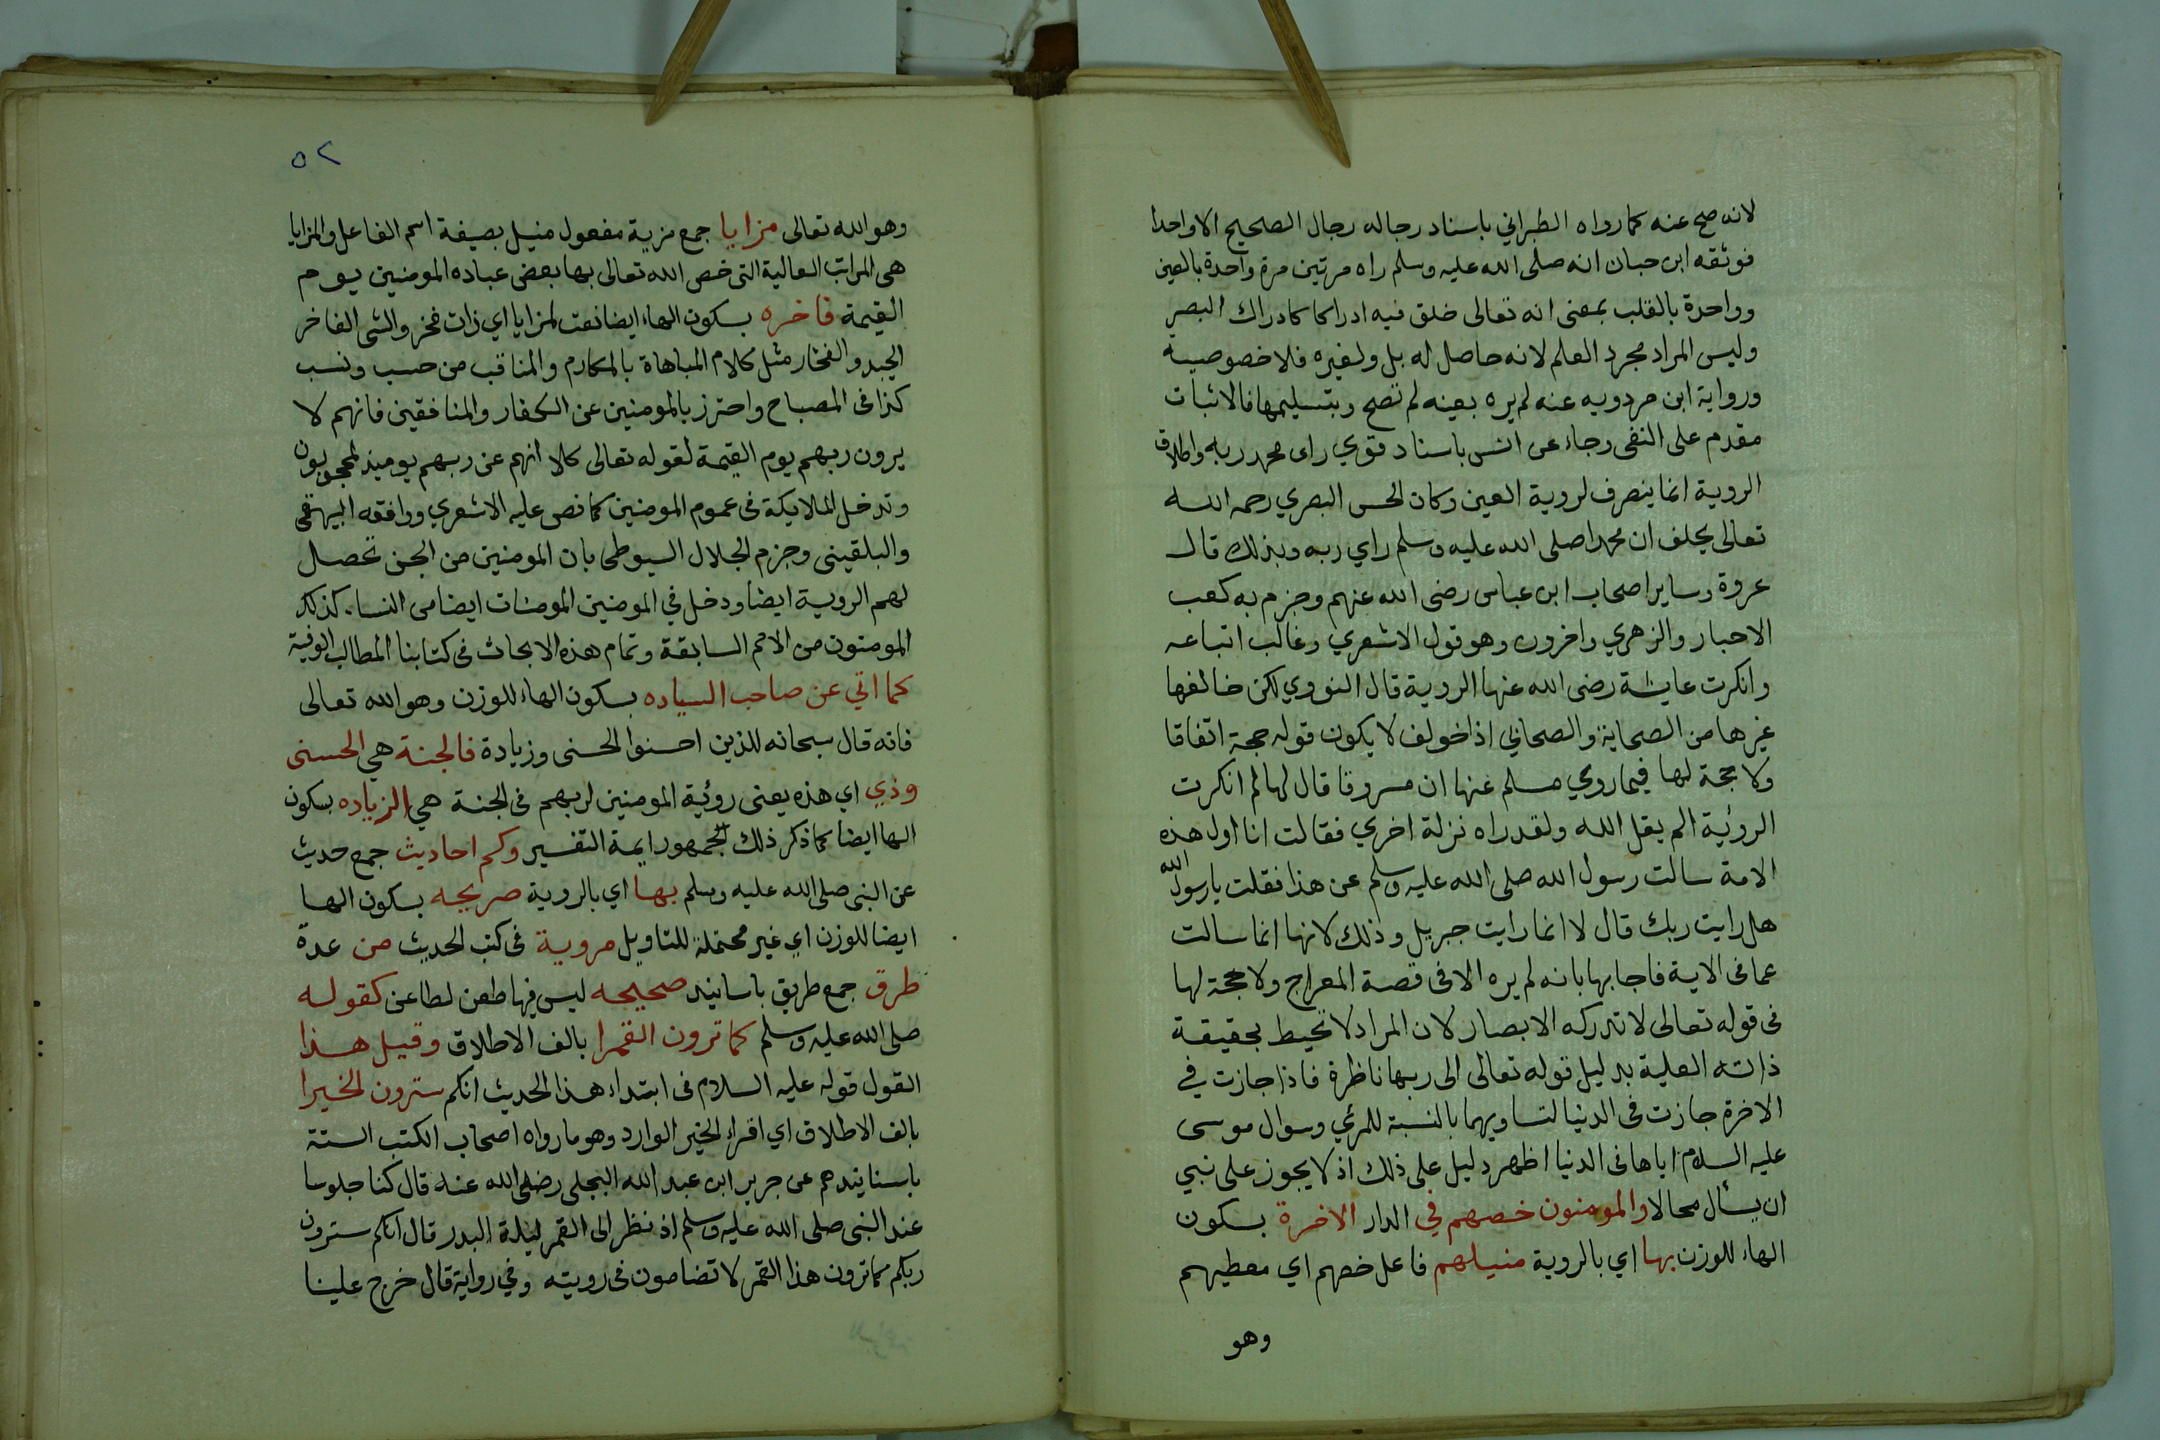 لانه صح عنه كما رواه الطبراني باسناد رجاله رجال الصحيح الا واحدا
فوثقه ابن حبان انه صلى الله عليه وسلم راه مرتين مرة واحدة بالعين
وواحدة بالقلب بمعنى انه تعالى خلق فيه ادراكا كادراك البصر
وليس المراد مجرد العلم لانه حاصل له بل ولغيره فلا خصوصية
ورواية ابن مردويه عنه لم يره بعينه لم تصح وبتسليمها فالاثبات
مقدم على النفى وجاء عن انس باسناد قوي راى محمد ربه واطلاق
الروية انما ينصرف لروية العين وكان الحسن البصري رحمه الله
تعالى يحلف ان محمدا صلى الله عليه وسلم راي ربه وبذلك قال
عروة وساير اصحاب ابن عباس رضى الله عنهم وجزم به كعب
الاحبار والزهري واخرون وهو قول الاشعري وغالب اتباعه
وانكرت عايشة رضى الله عنها الروية قال النووي لكن خالفها
غيرها من الصحابة والصحابي اذا خولف لا يكون قوله حجة اتفاقا
ولا حجة لها فيما روي مسلم عنها ان مسروقا قال لها لم انكرت
الروئية الم يقل الله ولقد راه نزلة اخري فقالت انا اول هذه
الامة سالت رسول الله صلى الله عليه وسلم عن هذا فقلت يا رسول الله
هل رايت ربك قال لا انما رايت جبريل وذلك لانها انما سالت
عما فى الاية فاجابها بانه لم يره الا فى قصة المعراج ولا حجة لها
فى قوله تعالى لا تدركه الابصار لان المراد لا تحيط بحقيقة
ذاته العلية بدليل قوله تعالى الى ربها ناظرة فاذا جازت في
الاخرة جازت فى الدنيا لتساويهما بالنسبة للمرئي وسوال موسى
عليه السلام اياها فى الدنيا اظهر دليل على ذلك اذ لا يجوز على نبي
ان يسأل محالا والمومنون خصهم في الدار الاخرة بسكون
الهاء للوزن بها اي بالروية منيلهم فاعل خصهم اي معطيهم
وهو
٥٢
وهو الله تعالى مزايا جمع مزية مفعول منيل بصيغة اسم الفاعل والمزايا
هى المراتب العالية التى خص الله تعالى بها بعض عباده المومنين يوم
القيمة فاخره بسكون الهاء ايضا نعت لمزايا اي ذات فخر والشى الفاخر
الجيد والفخار مثل كلام المباهاة بالمكارم والمناقب من حسب ونسب
كذا فى المصباح واحترز بالمومنين عن الكفار والمنافقين فانهم لا
يرون ربهم يوم القيمة لقوله تعالى كلا انهم عن ربهم يوميذ لمحجوبون
وتدخل الملايكة فى عموم المومنين كما نص عليه الاشعري ووافقه البيهقى
والبلقينى وجزم الجلال السيوطى بان المومنين من الجن تحصل
لهم الروية ايضا ودخل في المومنين المومنات ايضا من النساء كذلك
المومنون من الامم السابقة وتمام هذه الابحاث فى كتابنا المطالب الوفية
كما اتي عن صاحب السياده بسكون الهاء للوزن وهو الله تعالى
فانه قال سبحانه للذين احسنوا الحسنى وزيادة فالجنة هي الحسنى
وذي اي هذه يعنى روئية المومنين لربهم فى الجنة هي الزياده بسكون
الها ايضا كما ذكر ذلك الجمهور ايمة التفسير وكم احاديث جمع حديث
عن النبى صلى الله عليه وسلم بها اي بالروية صريحه بسكون الها
ايضا للوزن اي غير محتملة للتاويل مروية فى كتب الحديث من عدة
طرق جمع طريق باسانيد صحيحه ليس فيها طعن لطاعن كقوله
صلى الله عليه وسلم كما ترون القمرا بالف الاطلاق وقيل هذا
القول قوله عليه السلام فى ابتداء هذا الحديث انكم سترون الخبرا
بالف الاطلاق اي اقراء الخبر الوارد وهو ما رواه اصحاب الكتب الستة
باسنايندهم عن جرير ابن عبد الله البجلى رضى الله عنه قال كنا جلوسا
عند النبى صلى الله عليه وسلم اذ نظر الى القمر ليلة البدر قال انكم سترون
ربكم كما ترون هذا القمر لا تضامون فى رويته وفي رواية قال خرج علينا